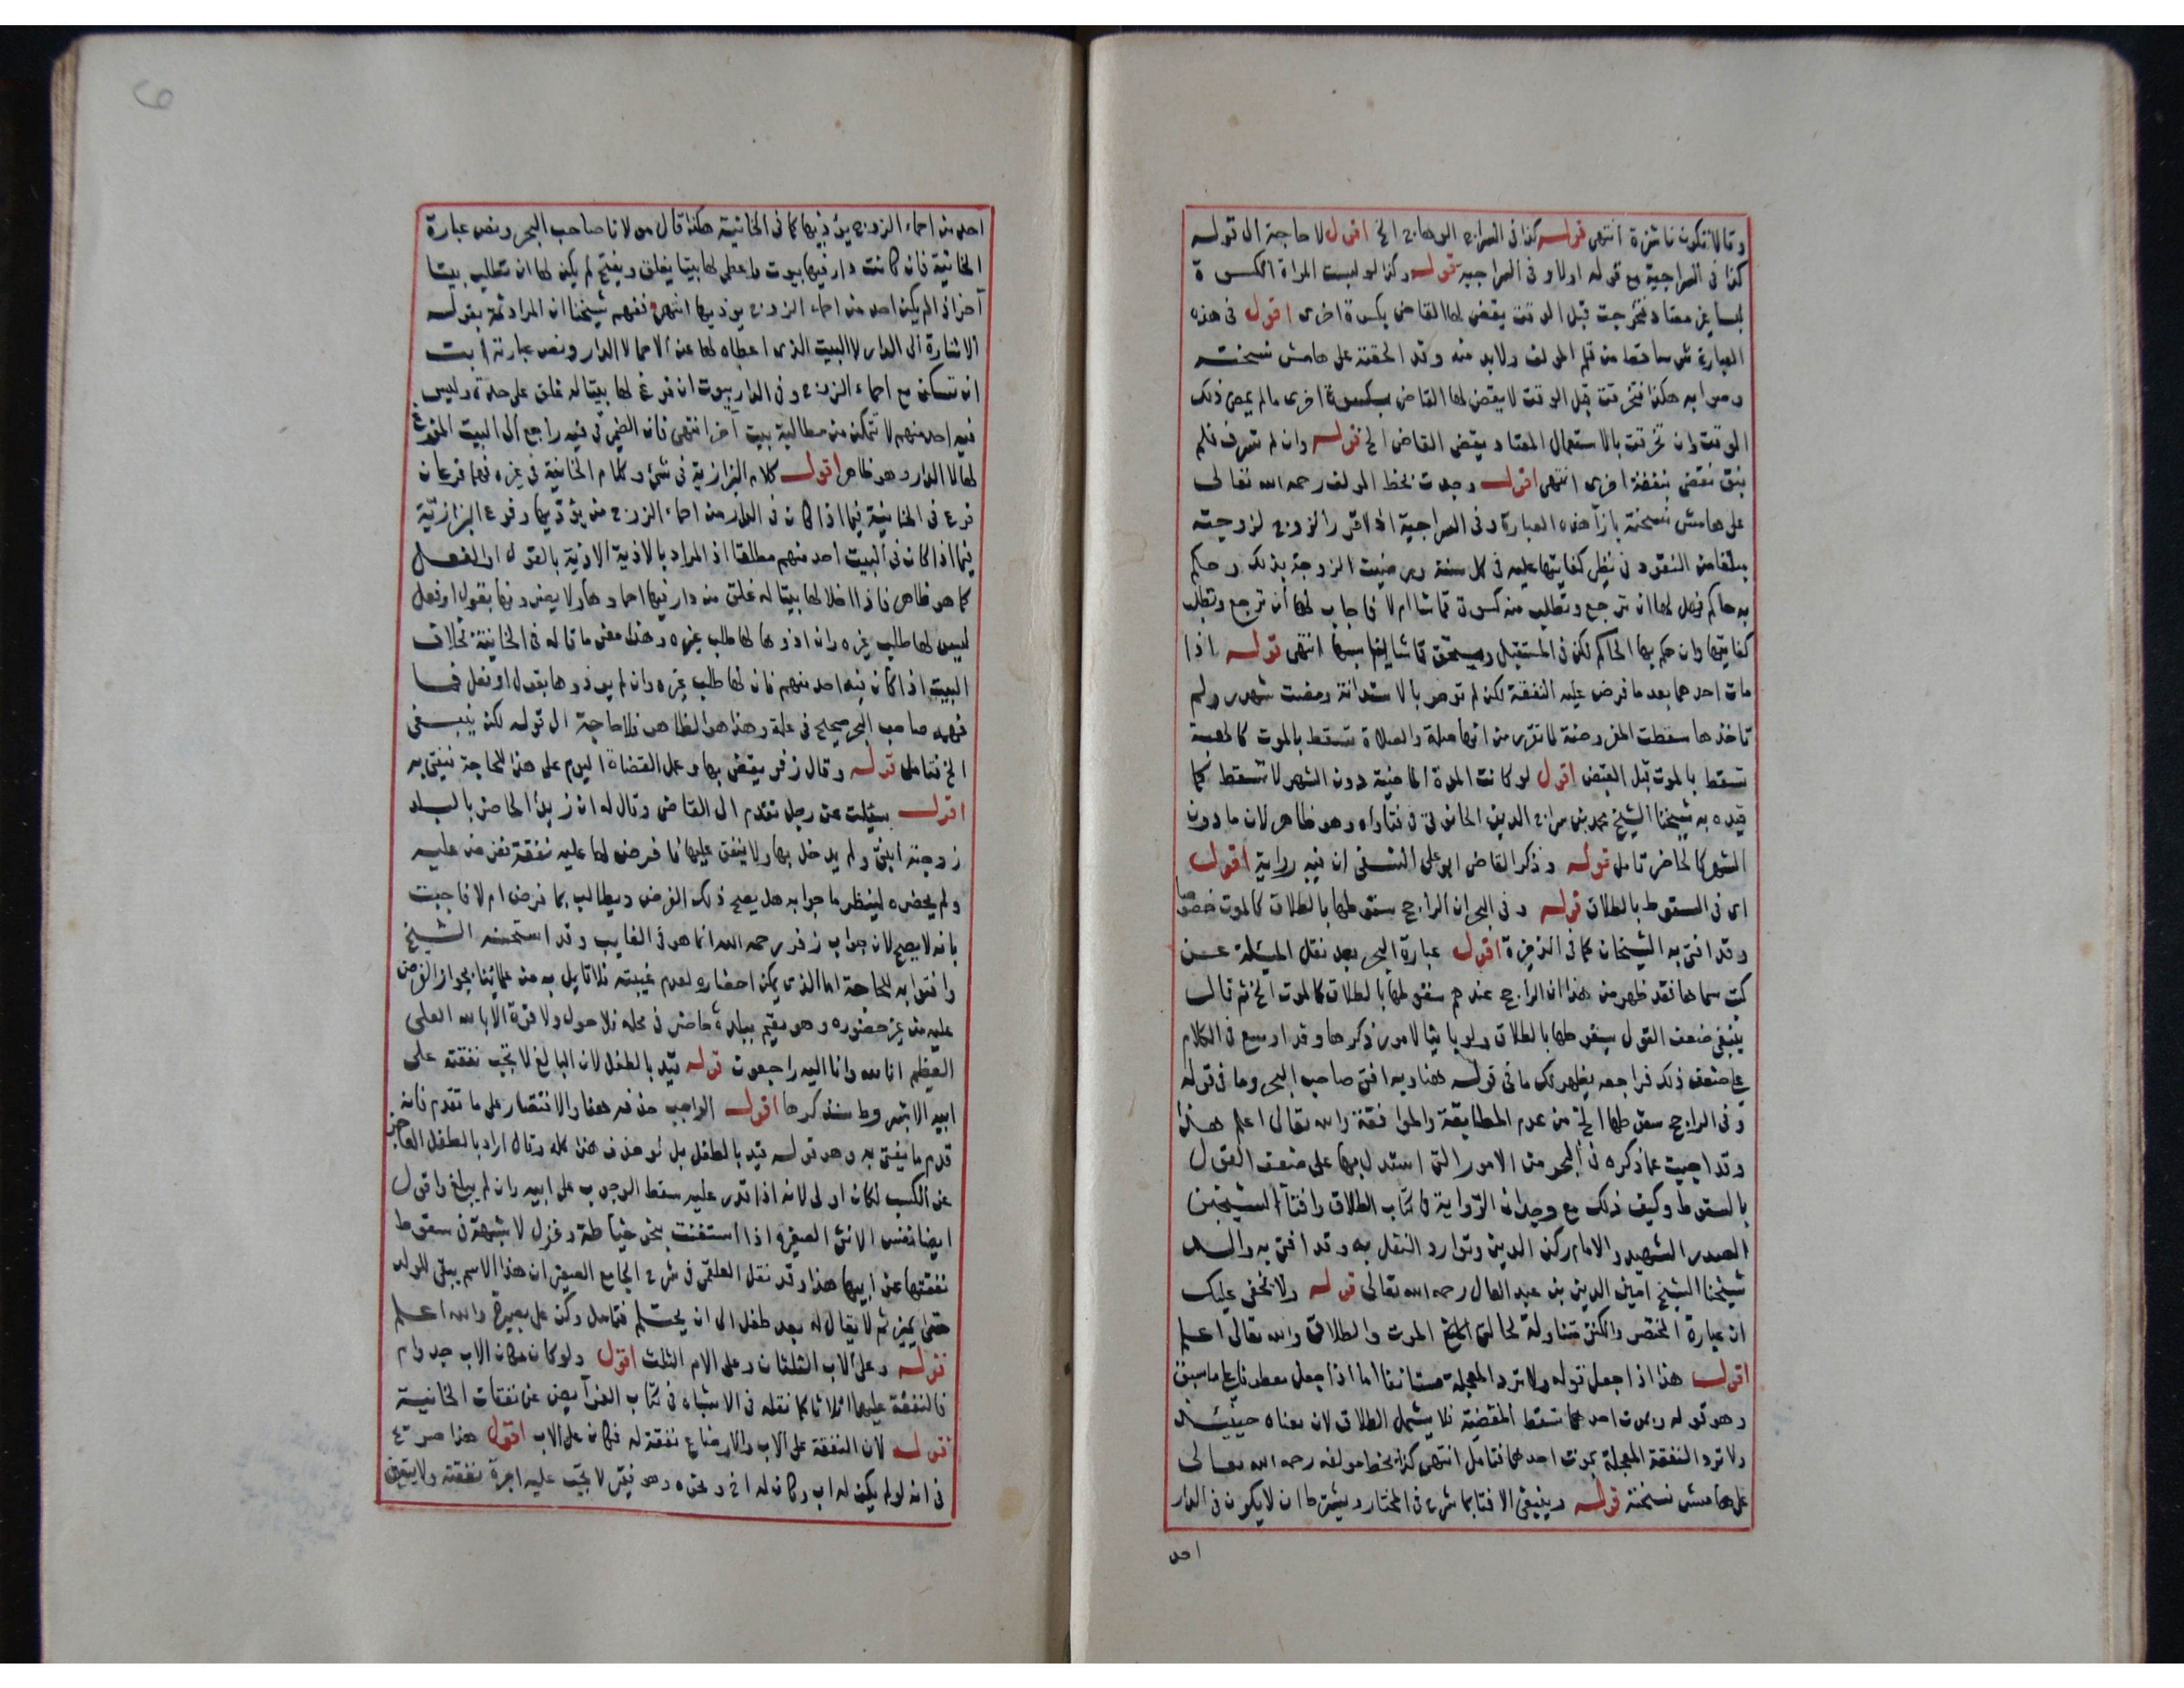 وقالا تكون ناشزة انتهى قوله كذا في السراج الوهاج الخ اقول لا حاجة الى قوله
كذا في السراجية مع قوله اولا وفي السراجية قوله وكذا لو لبست المراة الكسوة
لبسا غير معتاد فتخرجت قبل الوقت يقضي لها القاضي بكسوة اخرى اقول في هذه
العبارة شي ساقط من قلم المولف ولا بد منه وقد الحقته على هامش نسخته
وصوابه هكذا فتخرقت قبل الوقت لا يقضي لها القاضي بكسوة اخرى ما لم يمض ذلك
الوقت وان تخرقت بالاستعمال المعتاد يقضي القاضي الخ قوله وان لم تسرف فلم
يبق نقضي بنفقة اخرى انتهى اقول وجدت بخط المولف رحمه الله تعالى
على هامش نسخته بازآ هذه العبارة وفي السراجية اذا قرر الزوج لزوجته
مبلغا من النقود في نظير كفايتها عليه في كل سنة ورضيت الزوجة بذلك وحكم
به حاكم فهل لها ان ترجع وتطلب منه كسوة قماشا ام لا فاجاب لها أن ترجع وتطلب
كفايتها وان حكم بها الحاكم لكن في المستقبل ويستحق قماشا انتهى قوله اذا
مات احدهما بعد ما فرض عليه النفقة لكن لم تومر بالاستدانة ومضت شهور ولم
تاخذها سقطت المفروضة لما تقرر من انها صلة والصلاة تسقط بالموت كالهبة
تسقط بالموت قبل القبض اقول لو كانت المدة الماضية دون الشهر لا تسقط كما
قيده به شيخنا الشيخ محمد بن سراج الدين الحانوتي في فتاواه وهو ظاهر لان ما دون
الشهر كالحاضر تامل قوله وذكر القاضي ابو على النسفى ان فيه رواية اقول
اى في السقوط بالطلاق قوله وفي البحر ان الراجح سقوطها بالطلاق كالموت خصوصا
وقد افتى به الشيخان كما في الذخيرة اقول عبارة البحر بعد نقل المسئلة عن
كتب سماها فقد ظهر من هذا ان الراجح عندهم سقوطها بالطلاق كالموت الخ ثم قال
ينبغي ضعف القول بسقوطها بالطلاق ولو باينا لامور ذكرها وقد اوسع في الكلام
على ضعف ذلك فراجعه يظهر لك ما في قوله هنا وبه افتى صاحب البحر وما في قوله
وفي الراجح سقوطها الخ من عدم المطابقة والموافقة والله تعالى اعلم هذا
وقد اجيبت عما ذكره في البحر من الامور التي استدل بها على ضعف القول
بالسقوط وكيف ذلك مع وجدان الرواية في كتاب الطلاق وافتآ الشيخين
الصدر الشهيد والامام ركن الدين وتوارد النقل به وقد افتى به والد
شيخنا الشيخ امين الدين بن عبد العال رحمه الله تعالى قوله ولا يخفى عليك
ان عبارة المختصر والكنز متناولة لحالتى الموت والطلاق والله تعالى اعلم
اقول هذا اذا جعل قوله ولا ترد المعجلة مستانفا اما اذا جعل معطوفا على ما سبق
وهو قوله وبموت احدهما تسقط المقضية فلا يشمل الطلاق لان معناه حينئذ
ولا ترد النفقة المعجلة بموت احدهما فتامل انتهى كذا بخط مولفه رحمه الله تعالى
على هامش نسخته قوله وينبغي الافتا بما شرح في المختار ويشترط ان لا يكون في الدار
احد
احد من احماء الزوج يؤذيها كما في الخانية هكذا قال مولانا صاحب البحر ونص عبارة
الخانية فان كانت دار فيها بيوت واعطى لها بيتا يغلق ويفتح لم يكن لها ان تطلب بيتا
آخر اذا لم يكن احد من احماء الزوج يوذيها انتهى ففهم شيخنا ان المراد ثمة بقوله
الاشارة الى الدار لا البيت الذي اعطاه لها عن الاحما لا الدار ونص عبارته ابت
ان تسكن مع احماء الزوج وفي الدار بيوت ان فرغ لها بيتا له غلق على حدة وليس
فيه احد منهم لا تتمكن من مطالبة بيت آخر انتهى فان الضمير في فيه راجع الى البيت المفرغ
لها لا الدار وهو ظاهر اقول كلام البزازية في شئ وكلام الخانية في غيره فهما فرعان
فرع في الخانية فيما اذا كان في الدار من احماء الزوج من يؤذيها وفرع البزازية
فيما اذا كان في البيت احد منهم مطلقا اذ المراد بالاذية الاذية بالقول او الفعل
كما هو ظاهر فاذا اخلا لها بيتا له غلق من دار فيها احماوها ولا يضرونها بقول او فعل
ليس لها طلب غيره وان اذوها لها طلب غيره وهذا معنى ما قاله في الخانية بخلاف
البيت اذا كان فيه احد منهم فان لها طلب غيره وان لم يوذوها بقول او فعل فما
فهمه صاحب البحر صحيح في محله وهذا هو الظاهر فلا حاجة الى قوله لكن ينبغي
الخ فتامل قوله وقال زفر يقضي بها وعمل القضاة اليوم على هذا للحاجة فيفتى به
اقول سئلت عن رجل تقدم الى القاضي وقال له ان زيدا الحاضر بالبلد
زوجته ابنتي ولم يدخل بها ولا ينفق عليها فافرض لها عليه نفقة ففرض عليه
ولم يحضره لينظر ما جوابه هل يصح ذلك الفرض ويطالب بما فرض ام لا فاجبت
بانه لا يصح لان جواب زفر رحمه الله انما هو في الغايب وقد استحسنه الشيخ
وافتوا به للحاجة اما الذي يمكن احضاره لعدم غيبته فلا قايل به من علمائنا بجواز الفرض
عليه من غير حضوره وهو مقيم ببلدة حاضر في محله فلا حول ولا قوة الا بالله العلى
العظيم انا لله وانا اليه راجعون قوله قيد بالطفل لان البالغ لا تجب نفقته على
ابيه الا بشروط سنذكرها اقول الواجب حذفه هنا والاقتصار على ما تقدم فانه
قدم ما يغني به وهو قوله قيد بالطفل بل لو حذف هذا كله وقال اراد بالطفل العاجز
عن الكسب لكان اولى لانه اذا قدر عليه سقط الوجوب على ابيه وان لم يبلغ واقول
ايضا نفس الانثى الصغيرة اذا استغنت بنحو خياطة وغزل لا شبهة في سقوط
نفقتها عن ابيها هذا وقد نقل العلقمى في شرح الجامع الصغير ان هذا الاسم يبقى للولد
حتى يميز ثم لا يقال له بعد طفل الى ان يحتلم فتامل وكن على بصيرة والله اعلم
قوله وعلى الاب الثلثان وعلى الام الثلث اقول ولو كان مكان الاب جد وام
فالنفقة عليهما اثلاثا كما نقله في الاشباه في كتاب الفرآيض عن نفقات الخانية
قوله لان النفقة على الاب والارضاع نفقة له فكان على الاب اقول هذا صريح
في انه لو لم يكن له اب وكان له اخ ونحوه وهو فقير لا تجب عليه اجرة نفقته ولا